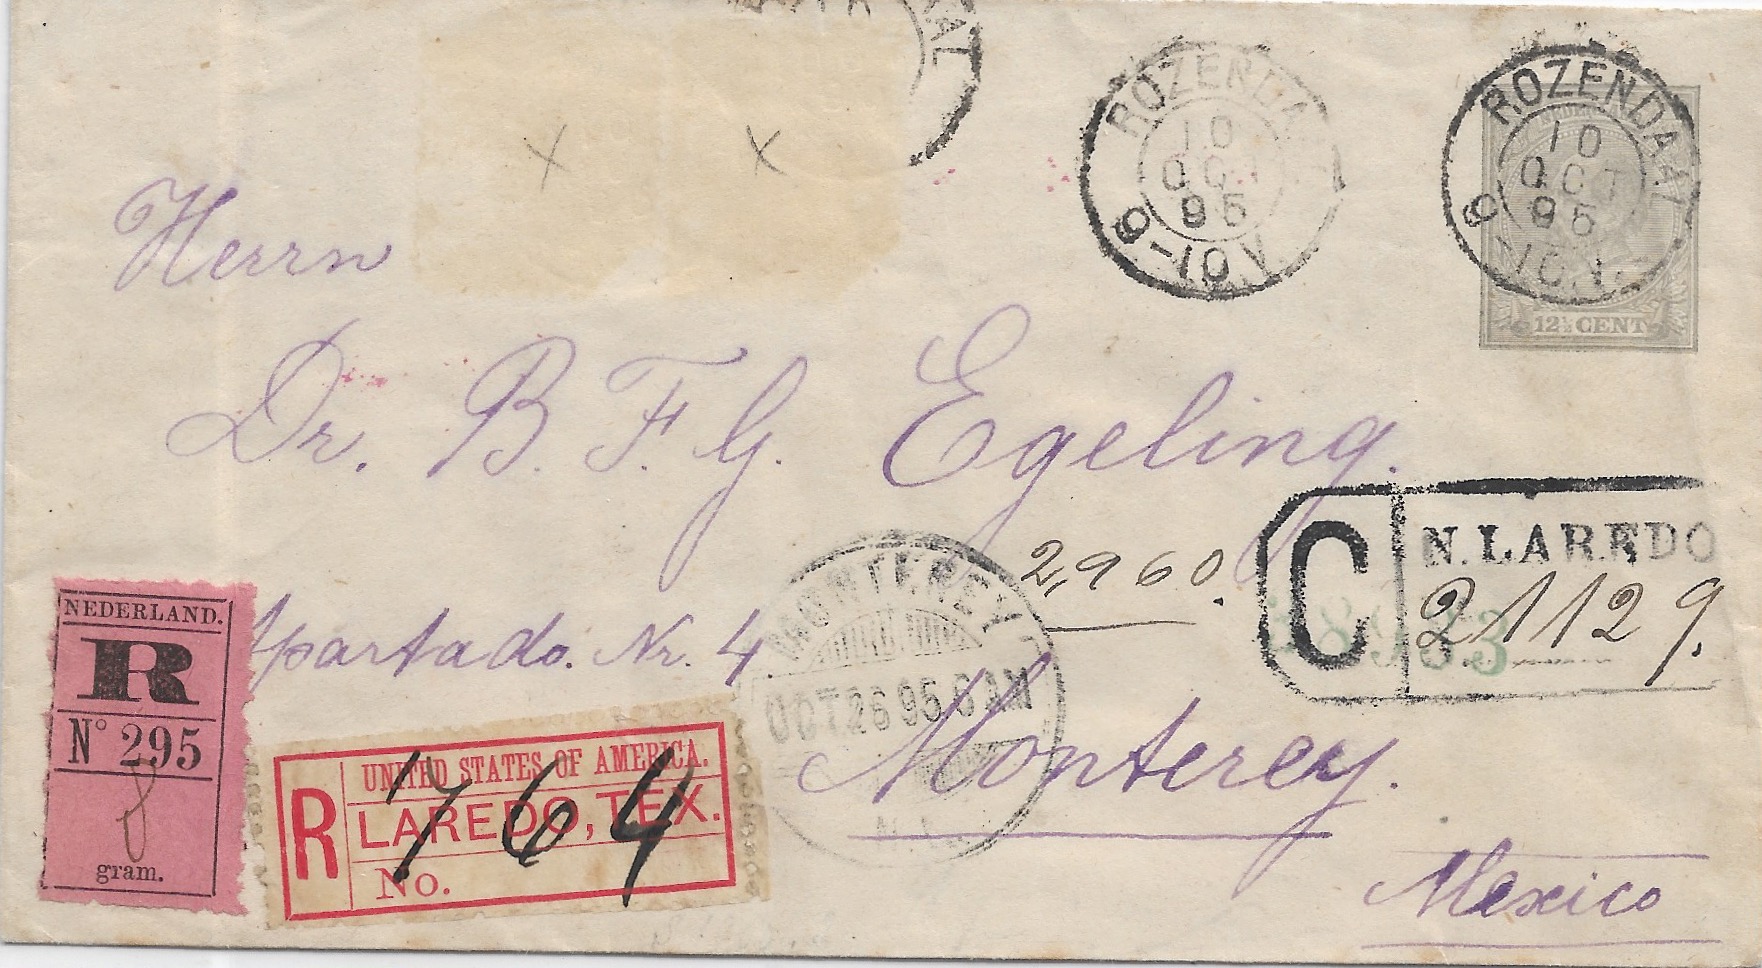 ROZENDAAL
10
OCT
95
9-10 V.
ROZENDAAL
10
OCT
95
9-10 V.
12½ CENT
X X
Herrn
Dr. B. F. G. Egeling.
2,960.
C N. LAREDO
21129.
Apartado. Nr. 4
MONTEREY
OCT 26 95 6 AM
Monterey.
Mexico
NEDERLAND.
R
No 295
8
gram.
UNITED STATES OF AMERICA.
R LAREDO, TEX.
No. 764